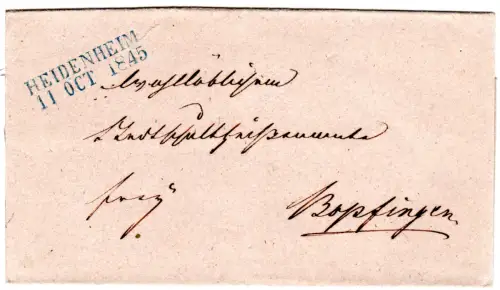 HEIDENHEIM
11 OCT 1845
Wohllöblichem
Stadtschultheißenamte
frey
Bopfingen.